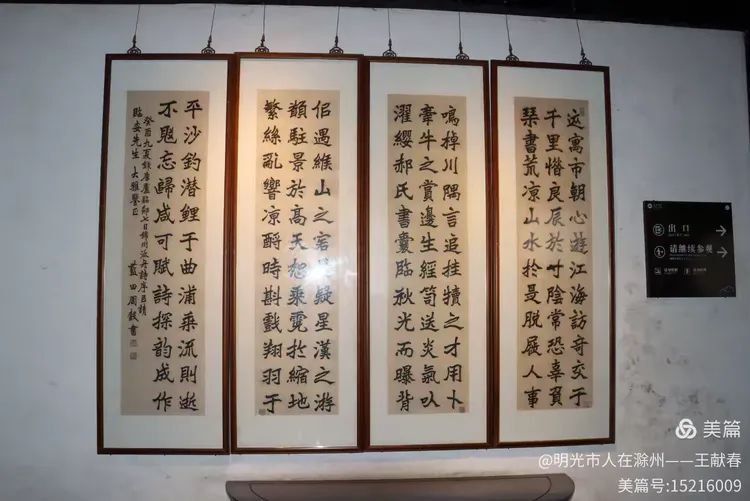 迹寓市朝心遊江海訪奇交于
千里惜良辰於寸陰常恐辜負
琴書荒凉山水於是脱屣人事
鳴棹川隅言追挂犢之才用卜
牽牛之賞邊生經笥送炎氣以
濯纓郝氏書囊臨秋光而曝背
侣遇緱山之客疑星漢之游
駐景於高天想乘霓於縮地
繁絲亂響凉酎時斟戲翔羽于
平沙釣潜鯉于曲浦乘流則逝
不覺忘歸咸可賦詩探韵成作
癸酉九夏録唐盧照鄰七日綿州泛舟詩序呈請
臨安先生大雅鑒正
藍田周毅書
出口
请继续参观
美篇
@明光市人在滁州——王献春
美篇号:15216009